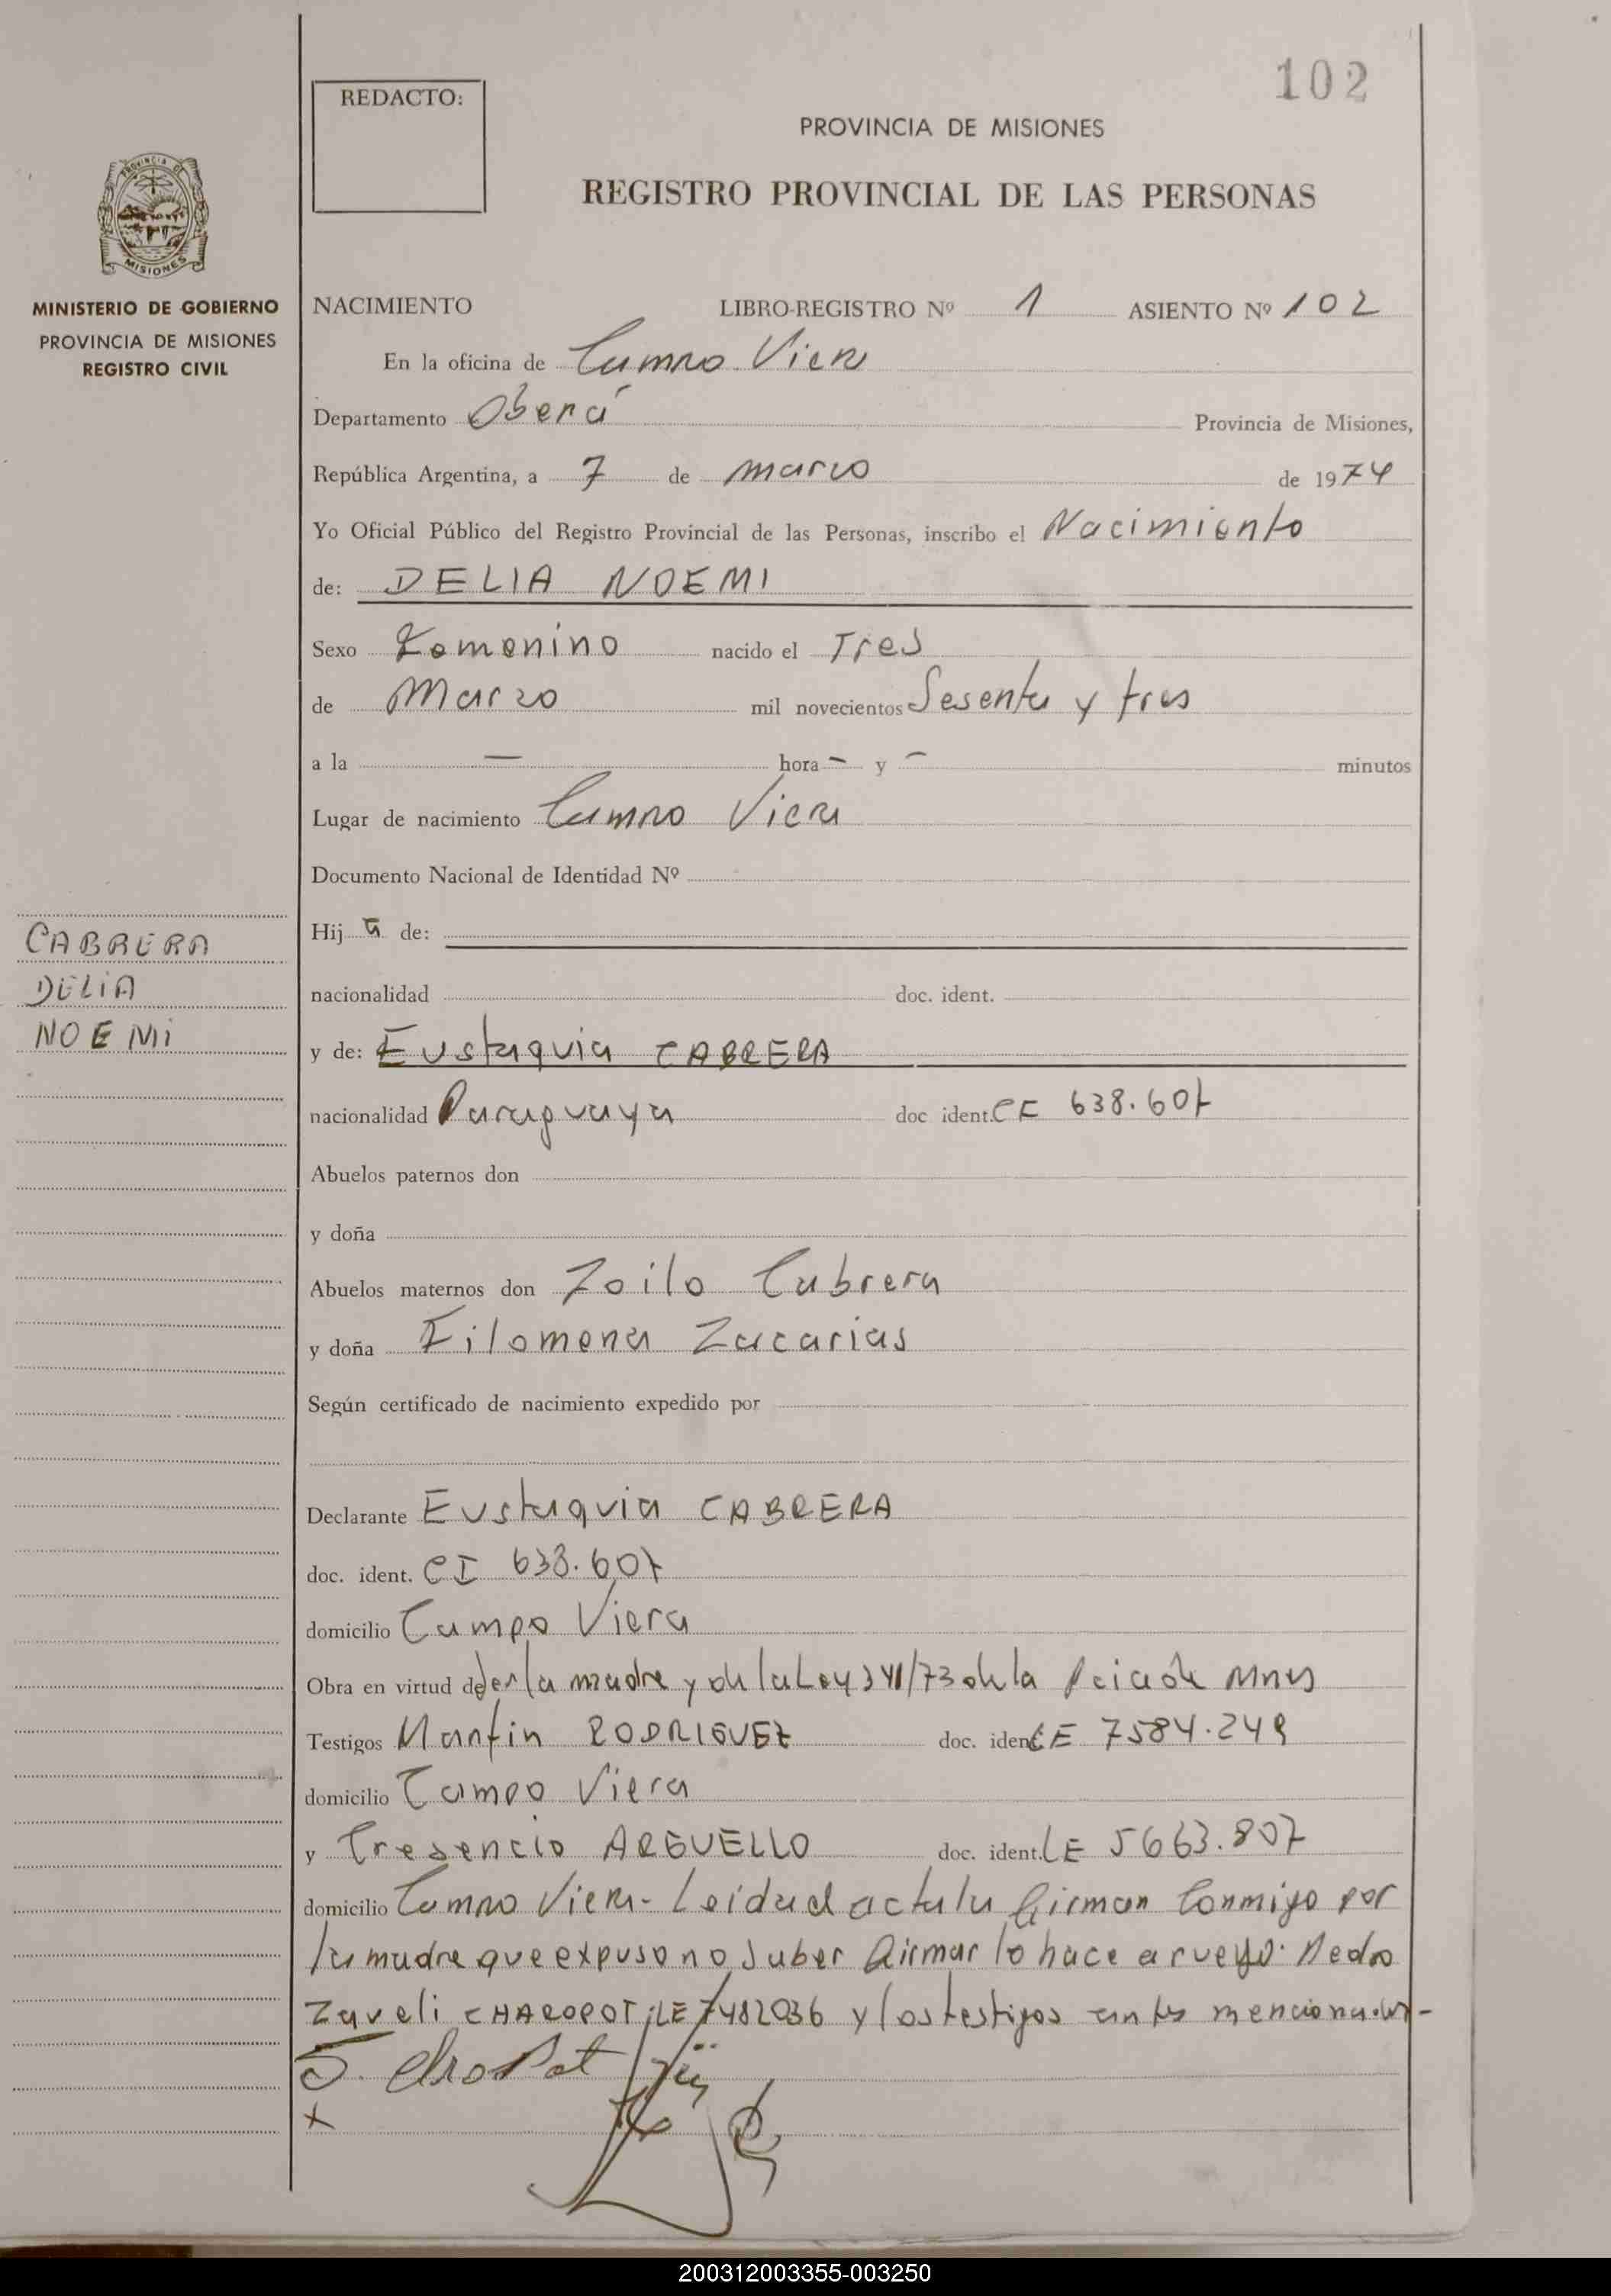 102
REDACTO:
PROVINCIA DE MISIONES
REGISTRO PROVINCIAL DE LAS PERSONAS
PROVINCIA DE
MISIONES
MINISTERIO DE GOBIERNO
PROVINCIA DE MISIONES
REGISTRO CIVIL
NACIMIENTO LIBRO-REGISTRO Nº 1 ASIENTO Nº 102
En la oficina de Campo Viera
Departamento Oberá Provincia de Misiones,
República Argentina, a 7 de marzo de 1974
Yo Oficial Público del Registro Provincial de las Personas, inscribo el Nacimiento
de: DELIA NOEMI
Sexo Femenino nacido el Tres
de Marzo mil novecientos Sesenta y tres
a la — hora - y - minutos
Lugar de nacimiento Campo Viera
Documento Nacional de Identidad Nº
Hij a de:
CABRERA
DELIA
NOEMi
nacionalidad doc. ident.
y de: Eustaquia CABRERA
nacionalidad Paraguaya doc ident. CE 638.607
Abuelos paternos don
y doña
Abuelos maternos don Zoilo Cabrera
y doña Filomena Zacarias
Según certificado de nacimiento expedido por
Declarante Eustaquia CABRERA
doc. ident. CI 638.607
domicilio Campo Viera
Obra en virtud de ser la madre y de la Ley 341/73 de la Pcia de Mnes
Testigos Martin RODRIGUEZ doc. ident. LE 7584.249
domicilio Campo Viera
y Cresencio ARGUELLO doc. ident. LE 5663.807
domicilio Campo Viera - Leida el acta la firman Conmigo por
la madre que expuso no saber firmar lo hace a ruego: Pedro
CHAROPOT LE 7482036 y los testigos antes mencionados-
200312003355-003250